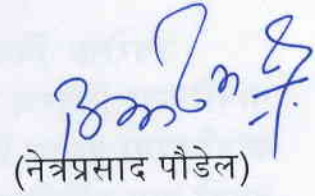 (नेत्रप्रसाद पौडेल)